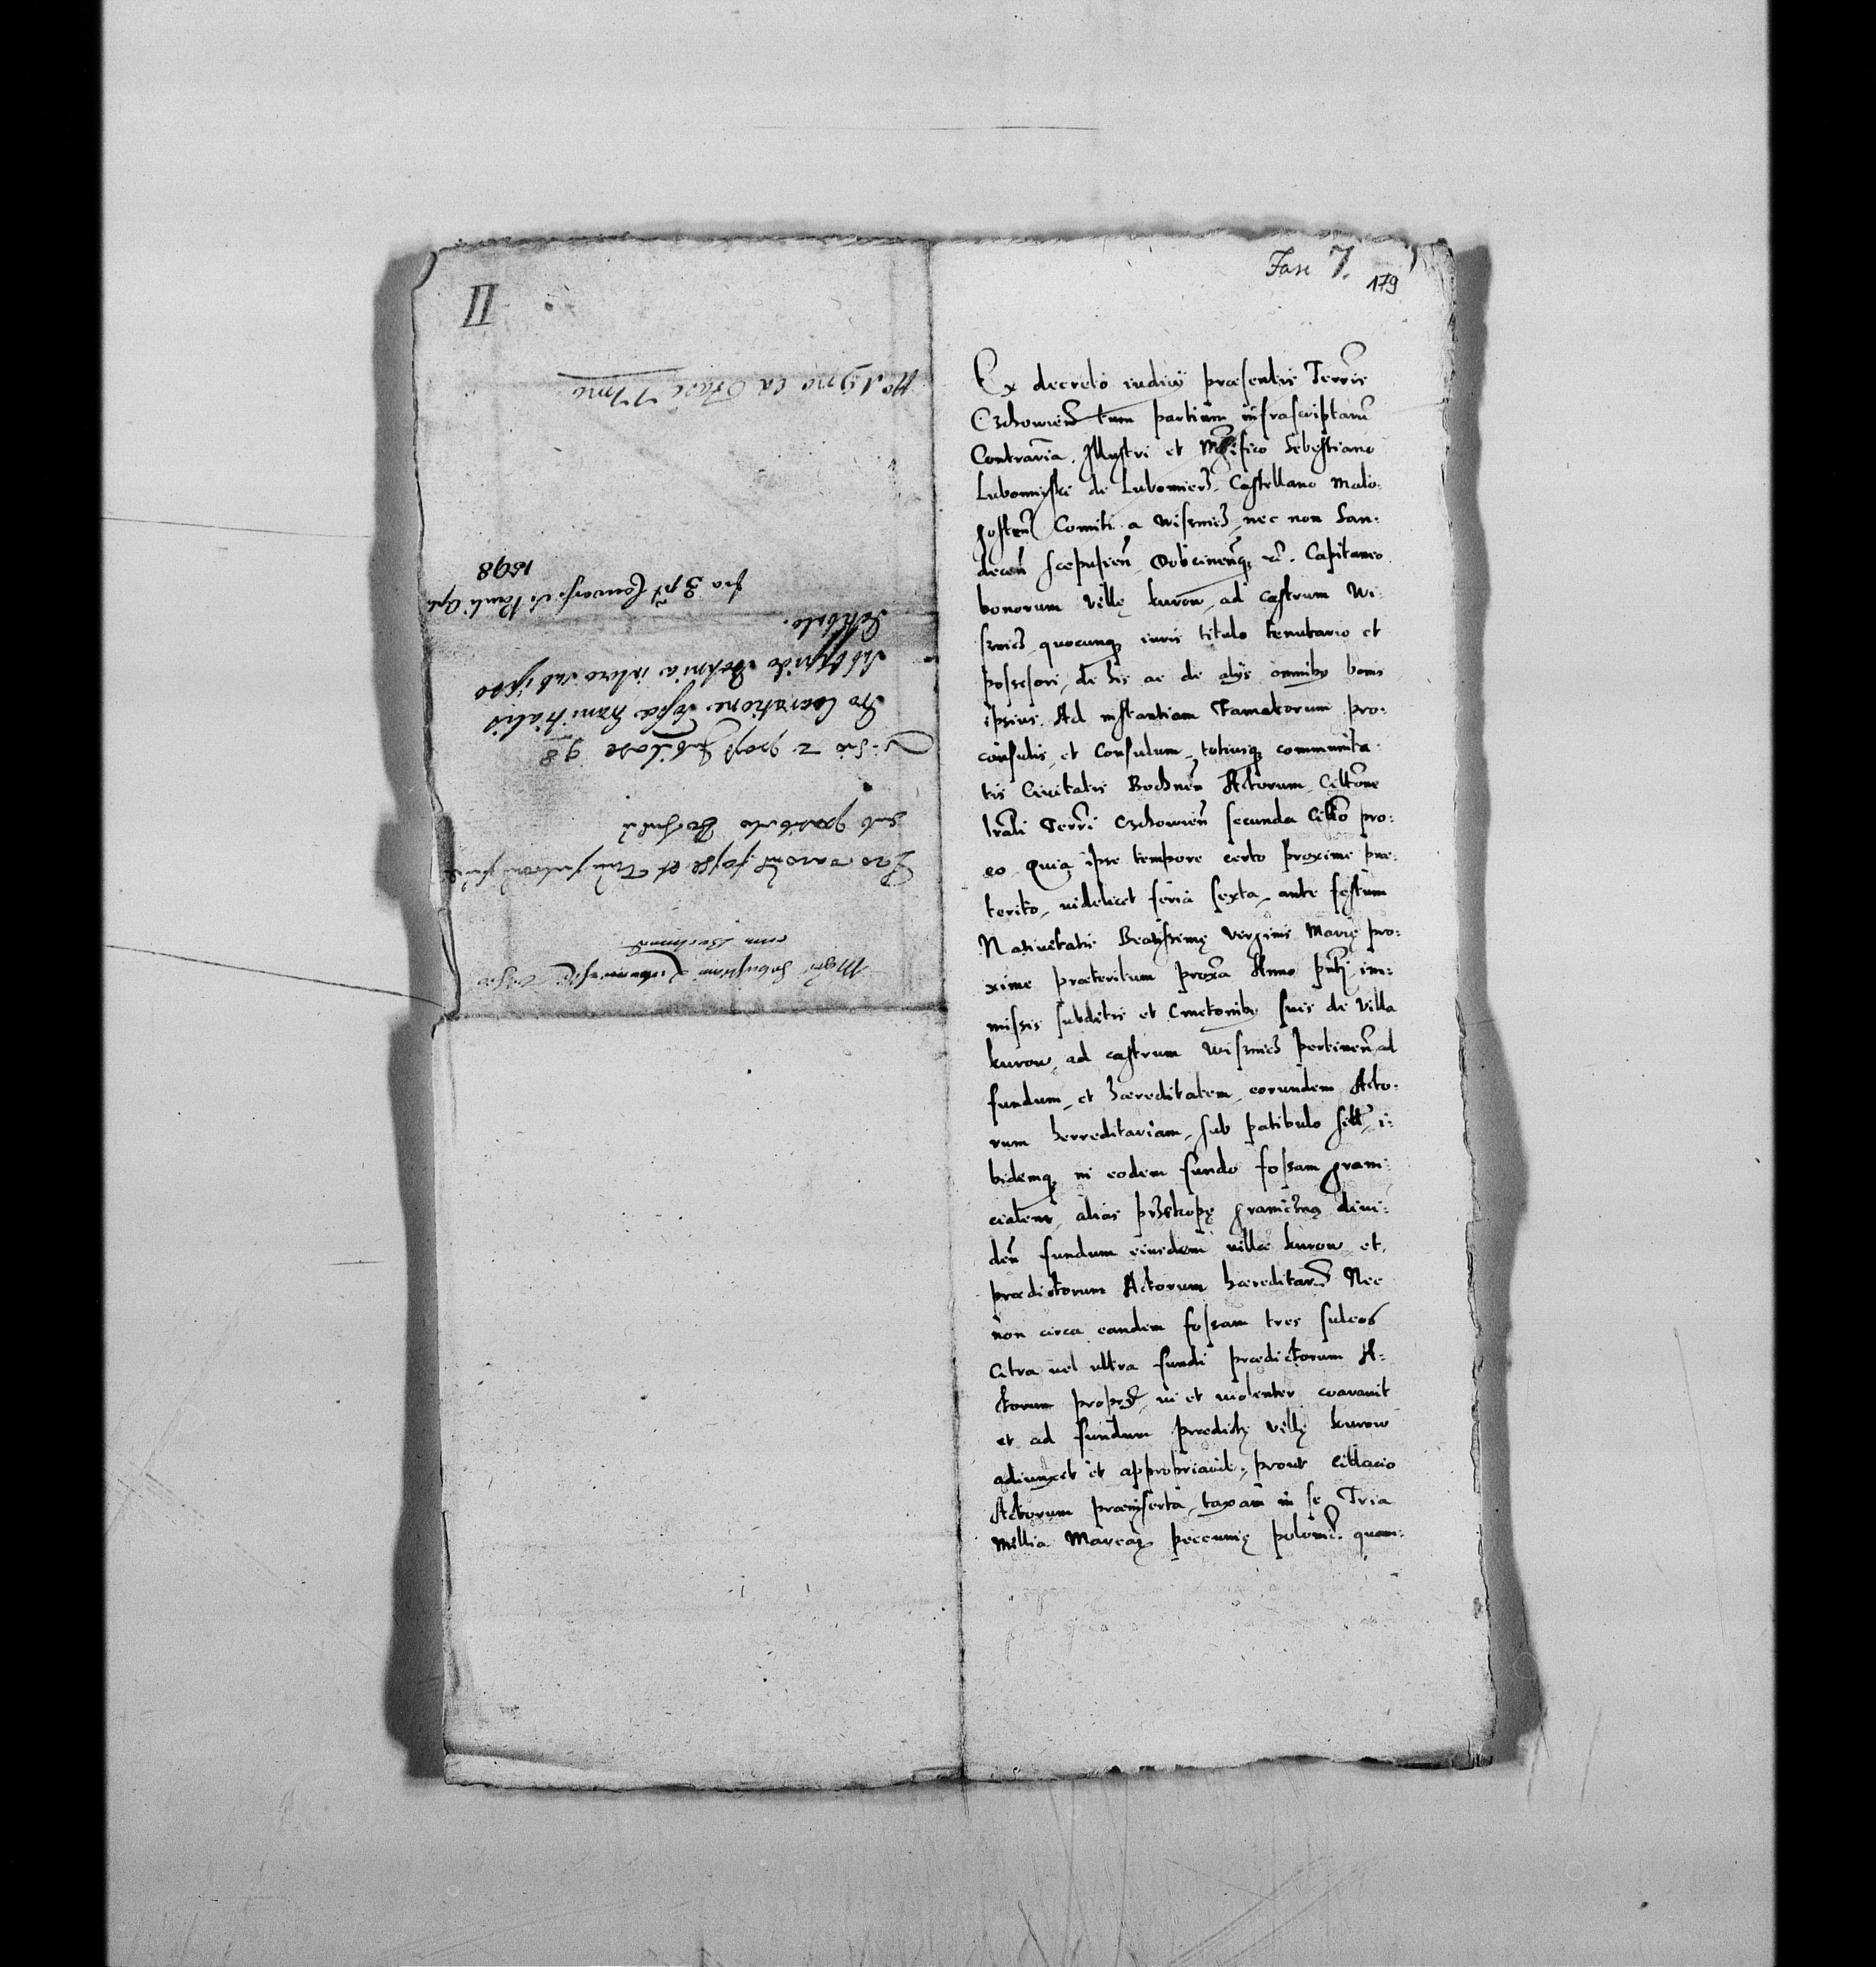 II
Fasc 7.
179
Ex decreto iudicij præsentis Terris
Czchowien̄ tum partium infrascriptaru
Contrav̄ia. Illustri et Mgnifico Sebestiano
Lubomirski de Lubomierz. Castellano Malo-
gosten̄ Comiti a Wisznicz, nec non San-
decen̄ Scepusien̄ Dobcinenq, &c. Capitaneo
bonorum villę kurow, ad castrum Wi-
sznicz quocunq iuris titulo tenutario et
possesori, de his ac de alijs omnibq bonis
ipsius. Ad instantiam Famatorum pro-
consulis, et Consulum, totiusq communita-
tis Civitatis Bochnen̄ Actorum Cittōne
lr̄ali Terrī Czchowien̄ secunda Cittō pro-
eo Quia ipse tempore certo proxime præ-
terito, uidelicet feria sexta, ante festum
Natiuitatis Beatissimę Virginis Marię pro-
xime præteritum proxa Anno pn̄ti im-
missis subditis et Cmetonibq suis de Villa
kurow, ad castrum Wisznicz pertinen̄ ad
fundum, et hæreditatem, eorundem Acto-
rum herreditariam, sub patibulo sitt, i-
bidemq in eodem fundo fossam grani-
cialem, alias przekopę graniczną diui-
den̄ fundum eiusdem uillæ kurow et,
prædictorum Actorum hæreditar Nec
non circa eandem fossam tres sulcos
Citra uel ultra fundi prædictorum A-
ctorum propr, ui et uiolenter coarauit
et ad fundum prædictę villę kurow
adiunxit et appropriauit, prout cittacio
Actorum præinserta, taxam in se Tria
Millia Marcar peccunię polonic. quam-
No 19no ea Fasc 7mo
Mgci Sebastiani Lubomirski
cum Bochnen
sub patibulo
98
Pro Exaratione fossæ Granitialis
Patibulo.
fra 3 pt Conuers. S. Pauli Apli
1598